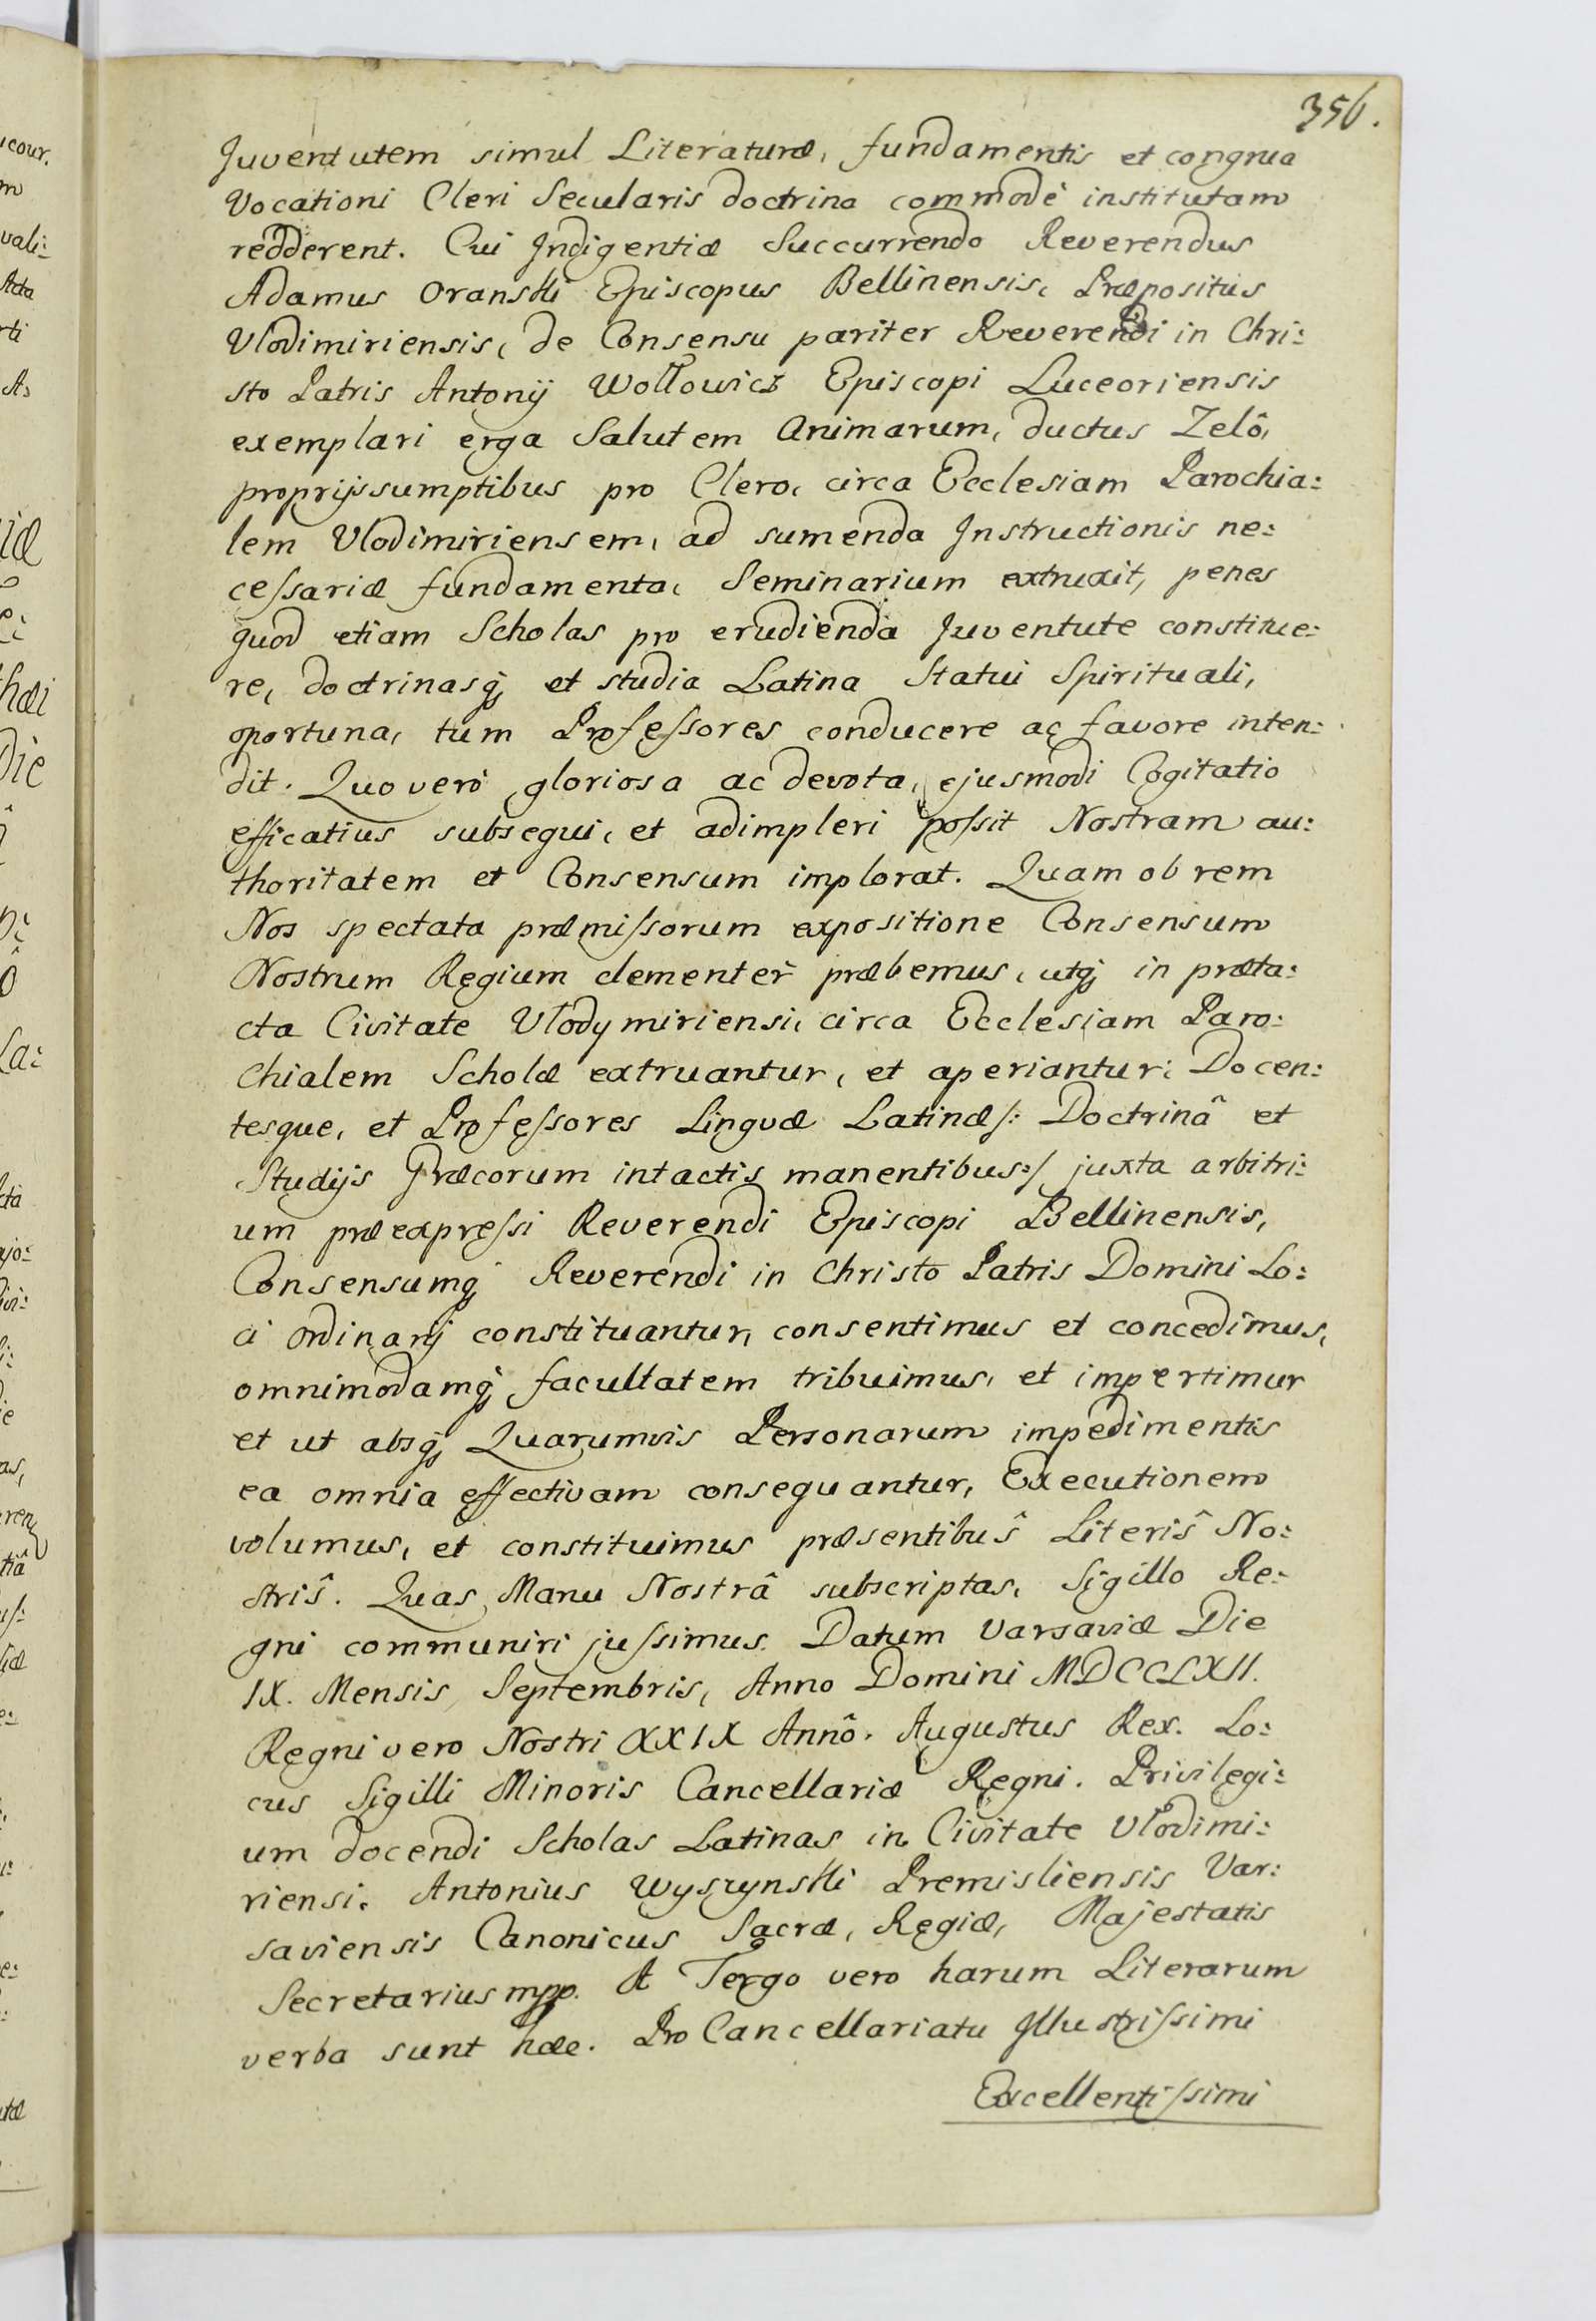 356.
Juventutem simul Literaturæ, fundamentis et congrua
Vocationi Cleri Secularis doctrina commodè institutam
redderent. Cui Indigentiæ Succurrendo Reverendus
Adamus Oranski Episcopus Bellinensis, Præpositus
Vlodimiriensis, de Consensu pariter Reverendi in Chri:
sto Patris Antonij Wołłowicz Episcopi Luceoriensis
exemplari erga Salutem Animarum, ductus Zelô,
proprijs sumptibus pro Clero, circa Ecclesiam Parochia:
lem Vlodimiriensem, ad sumenda Instructionis ne:
ceſsariæ fundamenta, Seminarium extruxit, penes
quod etiam Scholas pro erudienda Juventute constitue:
re, doctrinasq; et studia Latina Statui Spirituali,
oportuna, tum Profeſsores conducere ac favore inten:
dit. Quo verò gloriosa ac devota, ejusmodi Cogitatio
efficatius subsequi, et adimpleri poſsit Nostram au:
thoritatem et Consensum implorat. Quam ob rem
Nos spectata præmiſsorum expositione Consensum
Nostrum Regium clementèr præbemus, utq; in præta:
cta Civitate Vlodymiriensi, circa Ecclesiam Paro:
chialem Scholæ extruantur, et aperiantur: Docen:
tesque, et Profeſsores Linguæ Latinæ /: Doctrinâ et
Studijs Græcorum intactis manentibus :/ juxta arbitri:
um præexpreſsi Reverendi Episcopi Bellinensis,
Consensumq; Reverendi in Christo Patris Domini Lo:
ci Ordinarij constituantur, consentimus et concedimus,
omnimodamq; facultatem tribuimus, et impertimur
et ut absq; Quarumvis Personarum impedimentis
ea omnia effectivam consequantur, Executionem
volumus, et constituimus præsentibuŝ Literiŝ No:
striŝ. Quas Manu Nostrâ subscriptas, Sigillo Re:
gni communiri juſsimus. Datum Varsaviæ Die
IX. Mensis Septembris, Anno Domini MDCCLXII.
Regni vero Nostri XXIX Annô. Augustus Rex. Lo:
cus Sigilli Minoris Cancellariæ Regni. Privilegi:
um docendi Scholas Latinas in Civitate Vlodimi:
riensi. Antonius Wyszynski Premisliensis Var:
saviensis Canonicus Sacræ, Regiæ, Majestatis
Secretarius mpp. A Tergo vero harum Literarum
verba sunt hæc. Pro Cancellariatu Illustriſsimi
Excellentiſsimi